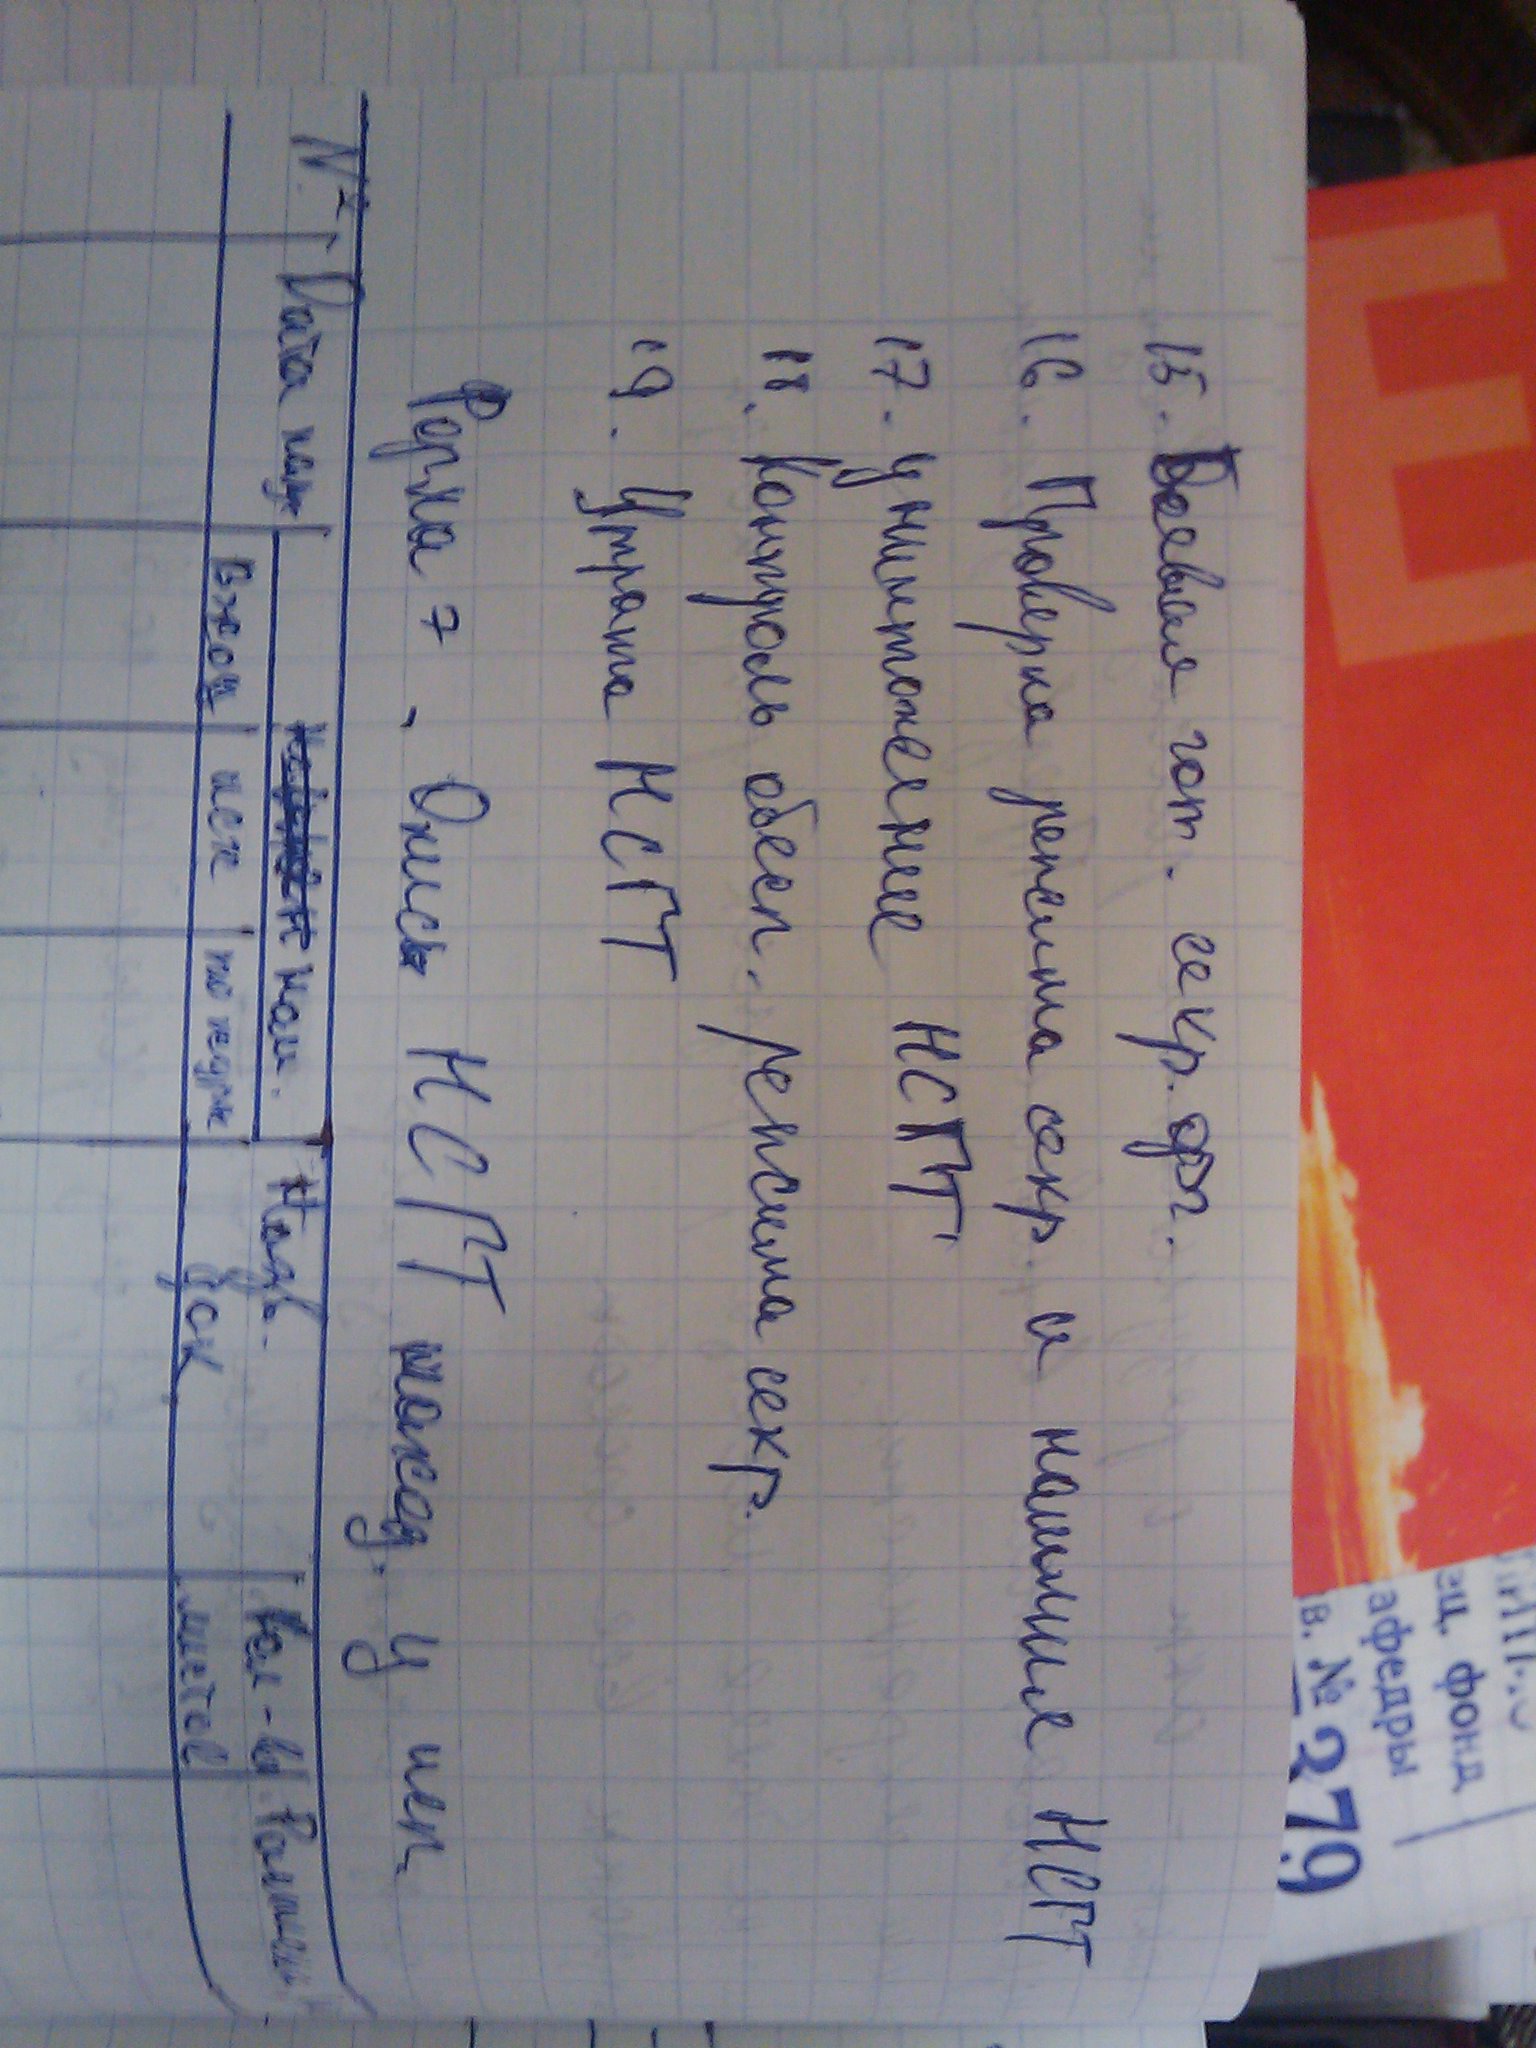 15. Боевая гот. секр. орг.
16. Проверка режима секр. и наличие НСГТ
17. Уничтожение НСГТ
18. Контроль обесп. режима секр.
19. Утрата НСГТ
Форма 7. Опись НСГТ наход. у исп.
№ Дата ном. Назв. Кол-во
вход исх док листов
ец. фонд
афедры
в. № 279